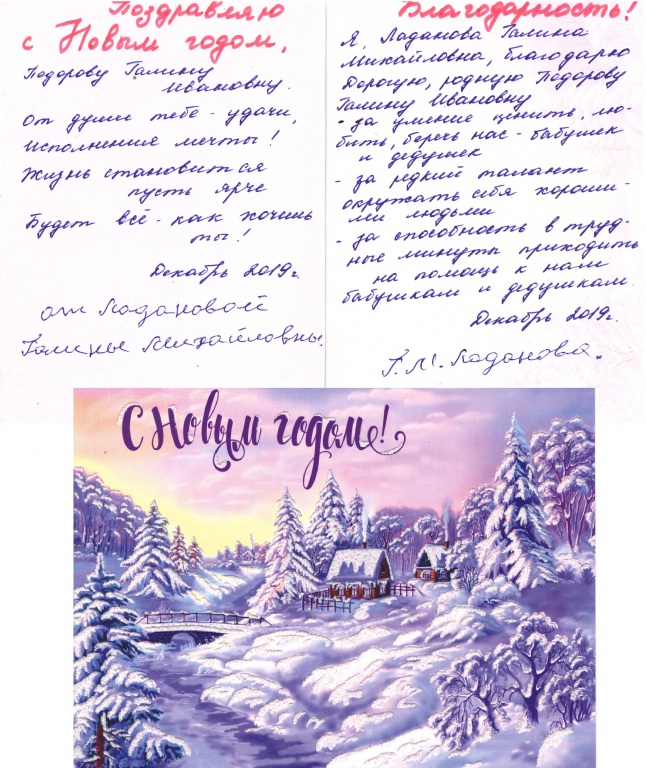 Поздравляю
с Новым годом,
Подорову Галину
Ивановну.
От души тебе - удачи,
Исполнения мечты!
Жизнь становится
пусть ярче
Будет всё - как хочешь
ты!
Декабрь 2019г.
от Ладановой
Галины Михайловны.
Благодарность!
Я, Ладанова Галина
Михайловна, благодарю
Дорогую, родную Подорову
Галину Ивановну
- за умение ценить, лю-
бить, беречь нас - бабушек
и дедушек
- за редкий талант
окружать себя хороши-
ми людьми
- за способность в труд-
ные минуты приходить
на помощь к нам
бабушкам и дедушкам.
Декабрь 2019г.
Г.М. Ладанова.
С Новым годом!